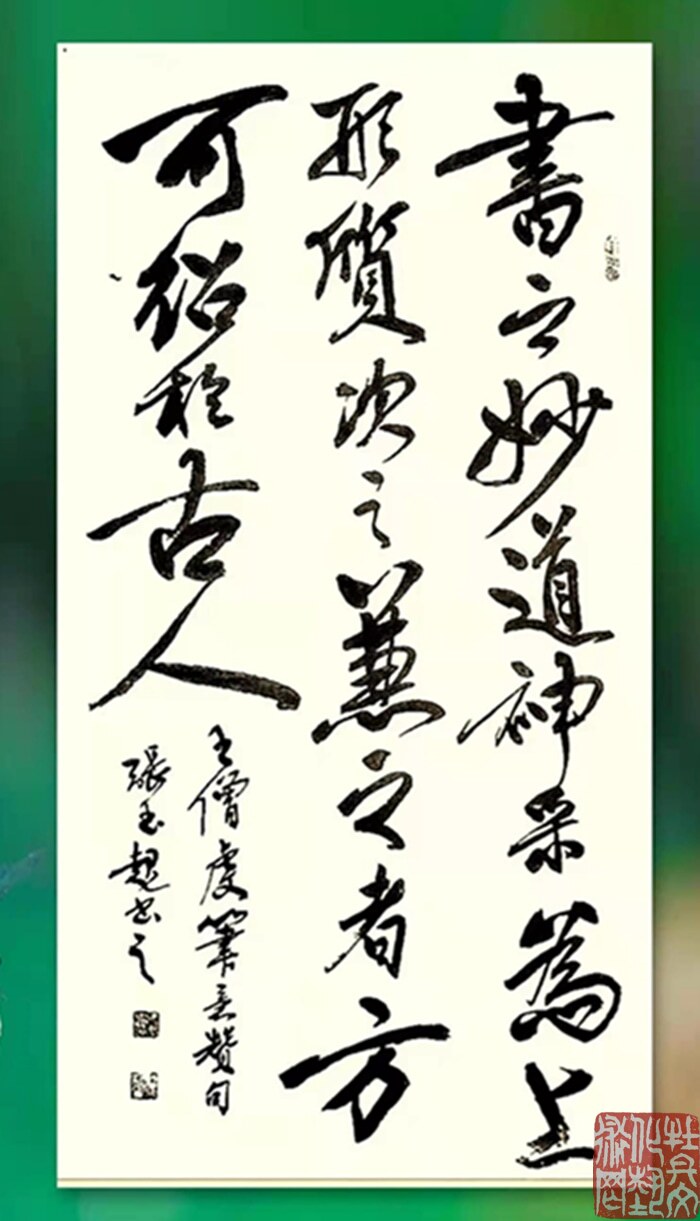 書之妙道神采為上
形質次之兼之者方
可紹於古人
王僧虔筆意贊句
張玉超書之